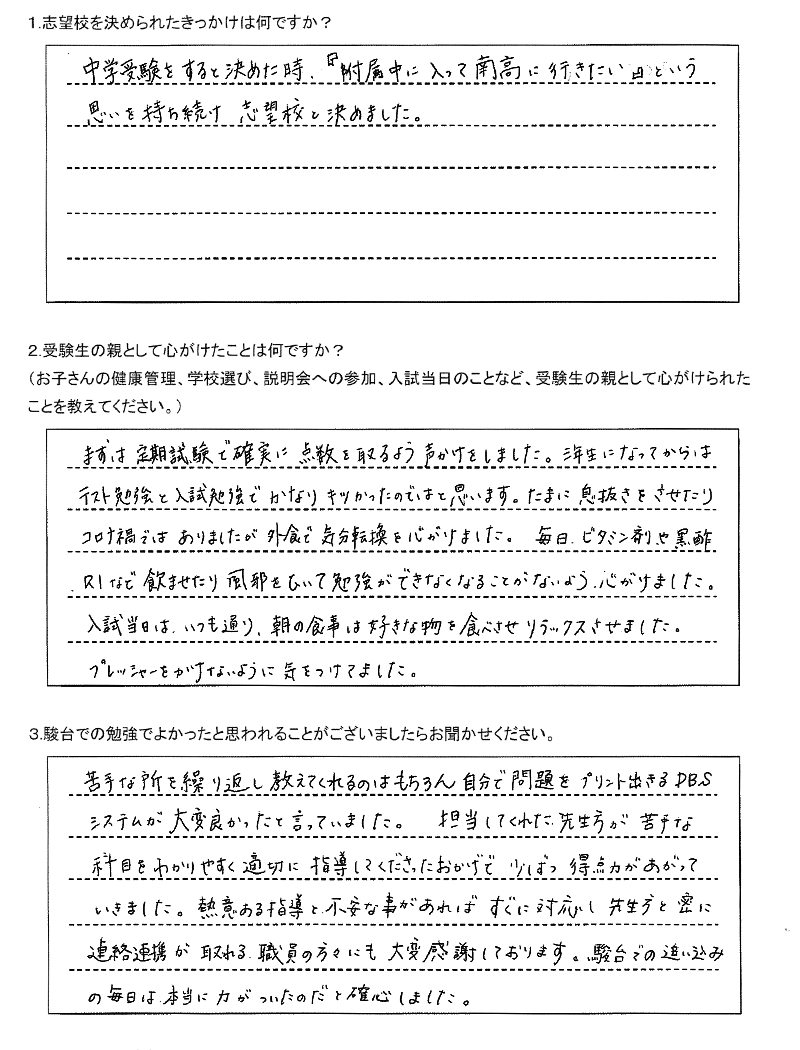 1.志望校を決められたきっかけは何ですか？
中学受験をすると決めた時、『附属中に入って南高に行きたい』という
思いを持ち続け 志望校と決めました。
2.受験生の親として心がけたことは何ですか？
（お子さんの健康管理、学校選び、説明会への参加、入試当日のことなど、受験生の親として心がけられた
ことを教えてください。）
まずは 定期試験で確実に 点数を取るよう 声かけをしました。三年生になってからは
テスト勉強と入試勉強で かなり キツかったのではと思います。たまに 息抜きを させたり
コロナ禍では ありましたが 外食で 気分転換を心がけました。 毎日、ビタミン剤や黒酢
R1など 飲ませたり 風邪をひいて 勉強が できなくなることがないよう、心がけました。
入試当日は、いつも通り、朝の食事は好きな物を食べさせ リラックスさせました。
プレッシャーをかけないように 気をつけてました。
3.駿台での勉強でよかったと思われることがございましたらお聞かせください。
苦手な所を繰り返し 教えてくれるのはもちろん 自分で 問題を プリント出きる DBS
システムが 大変良かったと言っていました。 担当してくれた、先生方が 苦手な
科目を わかりやすく 適切に 指導してくださったおかげで 少しずつ 得点力があがって
いきました。熱意ある指導と、不安な事があれば すぐに 対応し 先生方と 密に
連絡連携が 取れる、職員の方々にも 大変感謝しております。駿台での追い込み
の毎日は、本当に 力がついたのだと 確心しました。